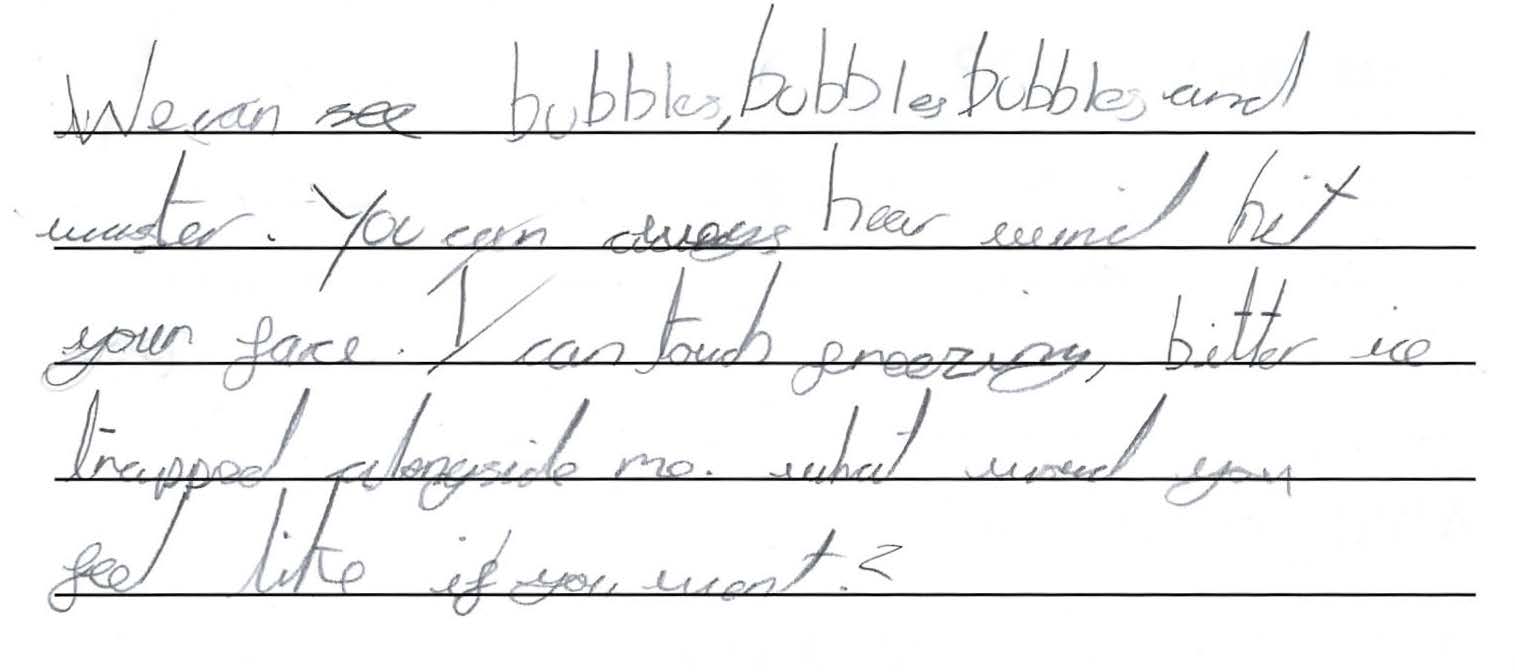 We can see bubbles, bubbles bubbles and
water. You can always hear wind hit
your face. I can touch freezing, bitter ice
trapped alongside me. what woud you
feel like if you went.?